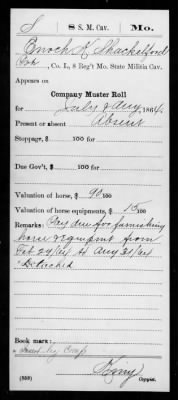 S | 8 S. M. Cav. | Mo.
Enoch K Shackelford
Pvt, Co. L, 8 Reg't Mo. State Militia Cav.
Appears on
Company Muster Roll
for July & Aug, 1864.
Present or absent Absent
Stoppage, $ 100 for
Due Gov't, $ 100 for
Valuation of horse, $ 90 100
Valuation of horse equipments, $ 15 100
Remarks: Pay due for furnishing
horse & equipment from
Feb 29/64 to Aug 31/64
Detached
Book mark:
(359) Copyist.